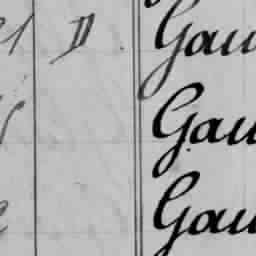 21 D Gau
Gau
Gau